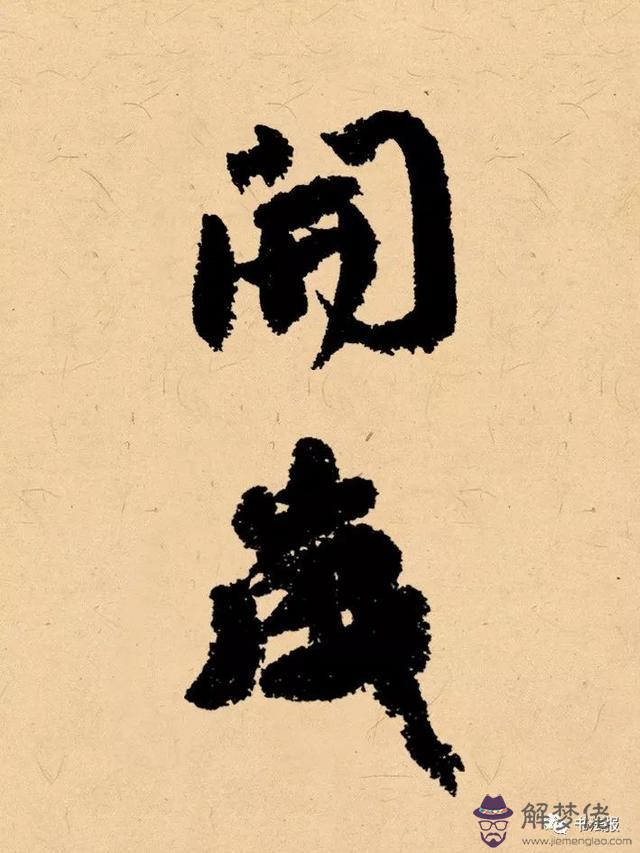 開
歲
解梦佬
www.jiemenglao.com
书法报